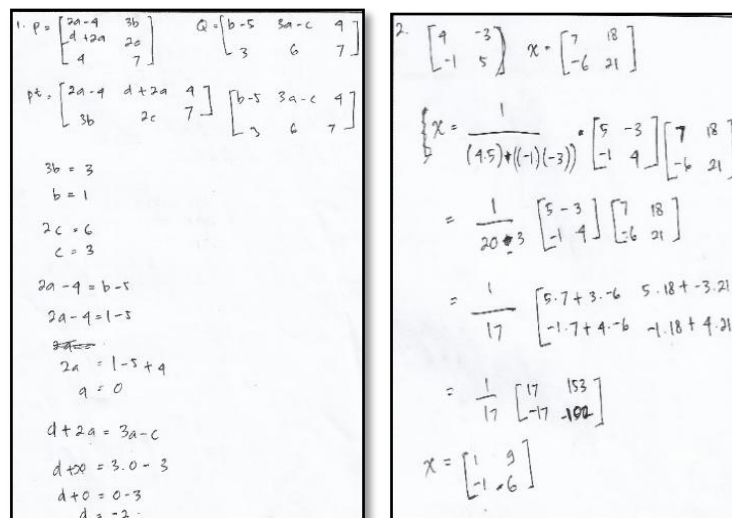 1. P = [2a-4 3b
d+2a 2c
4 7] Q = [b-5 3a-c 4
3 6 7]
pt = [2a-4 d+2a 4
3b 2c 7] [b-5 3a-c 4
3 6 7]
3b = 3
b = 1
2c = 6
c = 3
2a-4 = b-5
2a-4 = 1-5
2a = 1-5+4
a = 0
d+2a = 3a-c
d+2.0 = 3.0-3
d+0 = 0-3
2. [4 -3
-1 5] x = [7 18
-6 21]
x = 1/(4.5)+((-1)(-3)) . [5 -3
-1 4] [7 18
-6 21]
= 1/20-3 [5 -3
-1 4] [7 18
-6 21]
= 1/17 [5.7+3.-6 5.18+-3.21
-1.7+4.-6 -1.18+4.21]
= 1/17 [17 153
-17 -102]
x = [1 9
-1 -6]